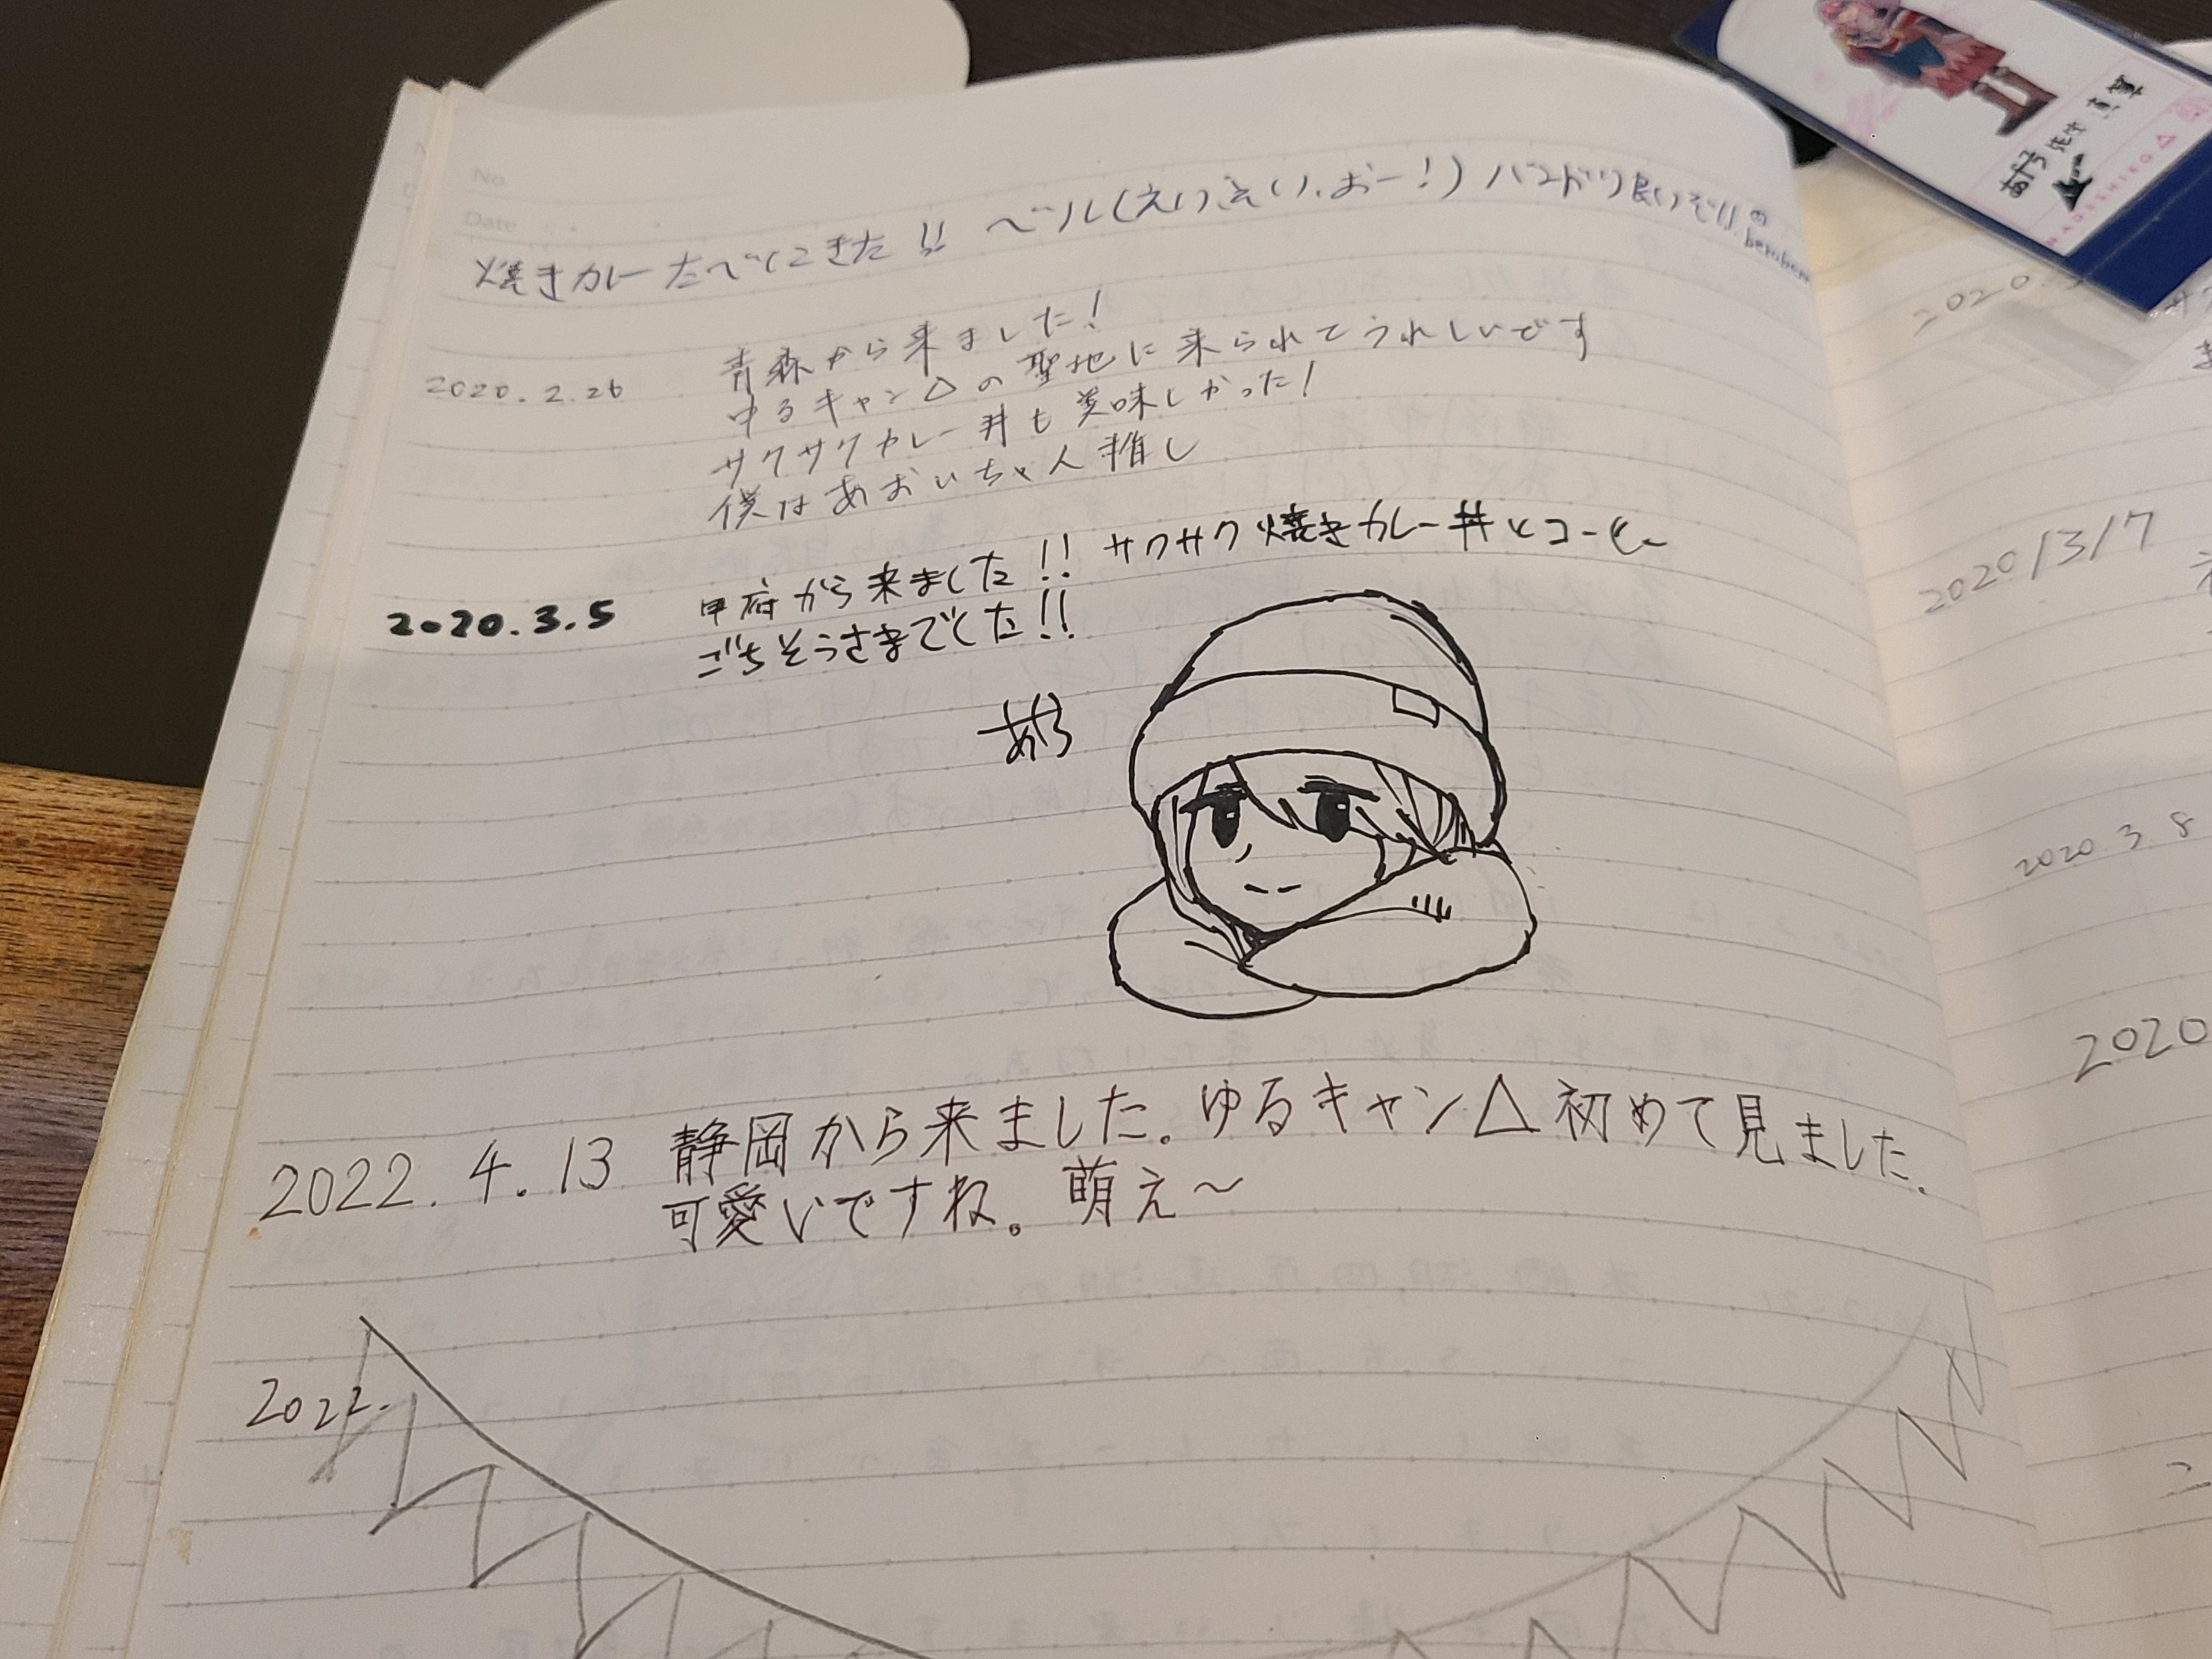 No.
Date
焼きカレーたべにきた!! ベル(えい、えい、おー!) バンドリ良いぞ!!
2020.2.26 青森から来ました!
ゆるキャン△の聖地に来られてうれしいです
サクサクカレー丼も美味しかった!
僕はあおいちゃん推し
2020.3.5 甲府から来ました!! サクサク焼きカレー丼とコーヒー
ごちそうさまでした!!
2022.4.13 静岡から来ました。ゆるキャン△初めて見ました。
可愛いですね。萌え〜
2022.
NADESHIKO
2020.
2020/3/7
2020 3 8
2020